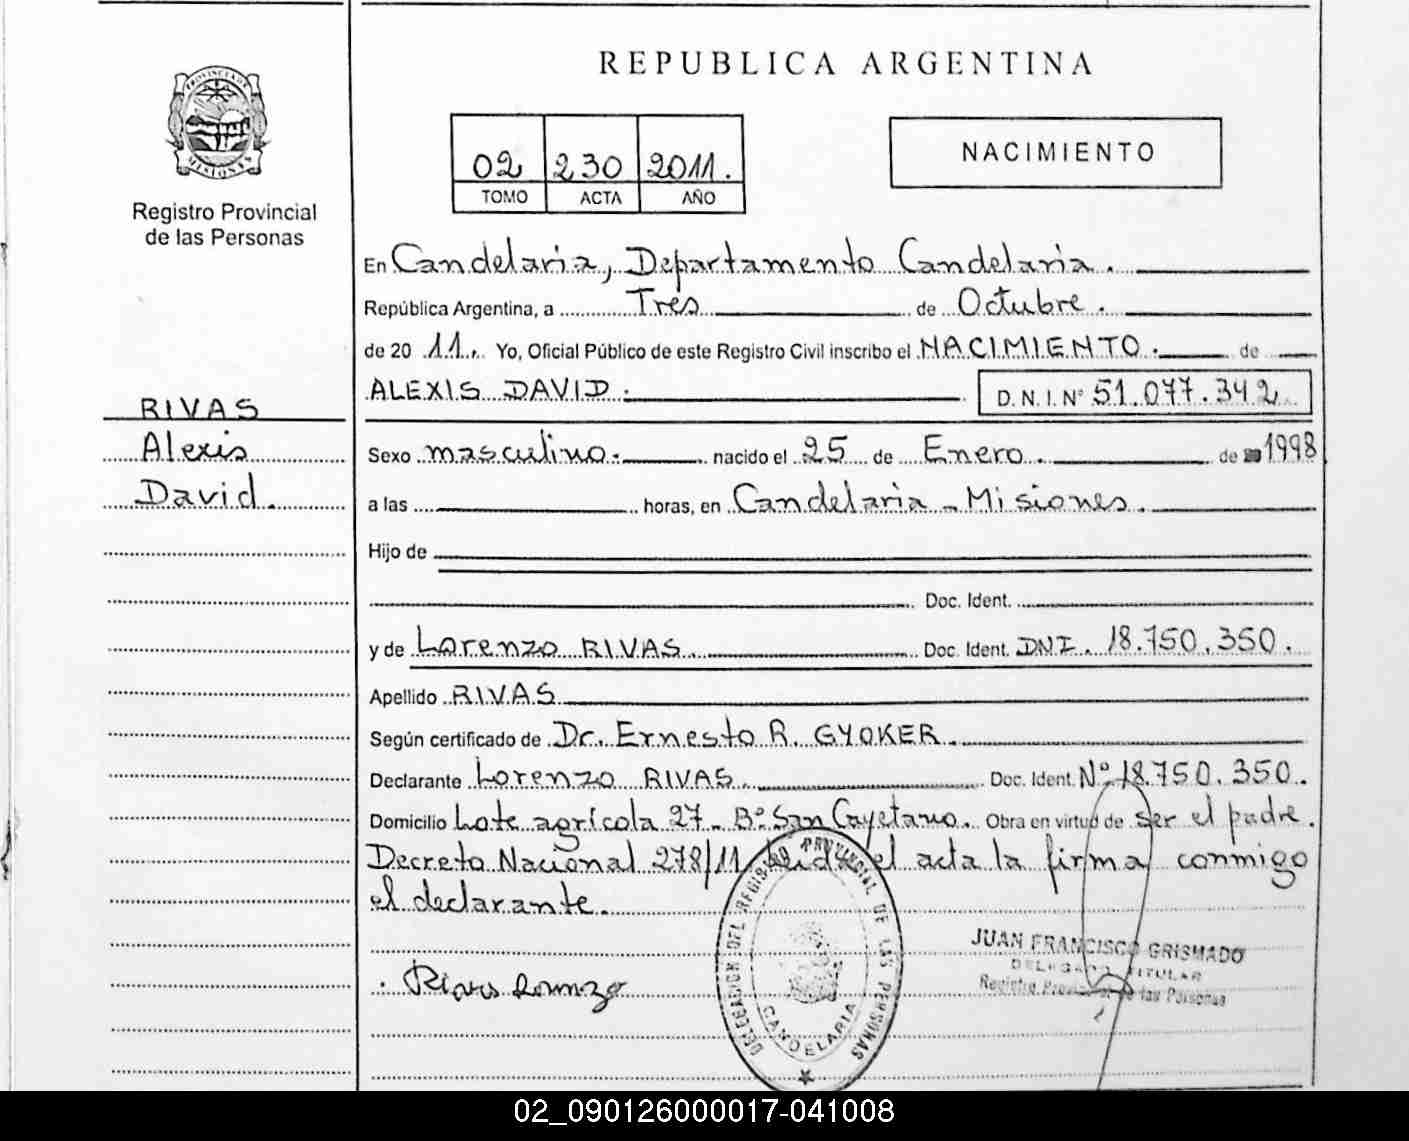 REPUBLICA ARGENTINA
PROVINCIA DE MISIONES
Registro Provincial
de las Personas
02 230 2011.
TOMO ACTA AÑO
NACIMIENTO
En Candelaria, Departamento Candelaria.
República Argentina, a Tres de Octubre.
de 20 11. Yo, Oficial Público de este Registro Civil inscribo el NACIMIENTO. de
ALEXIS DAVID. D.N.I. Nº 51.077.342
RIVAS
Alexis
David.
Sexo masculino. nacido el 25 de Enero. de 1998
a las horas, en Candelaria - Misiones.
Hijo de
Doc. Ident.
y de Lorenzo RIVAS. Doc. Ident. DNI. 18.750.350.
Apellido RIVAS
Según certificado de Dr. Ernesto R. GYOKER.
Declarante Lorenzo RIVAS. Doc. Ident. Nº 18.750.350.
Domicilio Lote agrícola 27 - Bº San Cayetano. Obra en virtud de ser el padre.
Decreto Nacional 278/11 Leída el acta la firma conmigo
el declarante.
DELEGACION DEL REGISTRO PROVINCIAL DE LAS PERSONAS
CANDELARIA
JUAN FRANCISCO GRISMADO
DELEGADO TITULAR
Registro Provincial de las Personas
Rivas Lorenzo
02_090126000017-041008